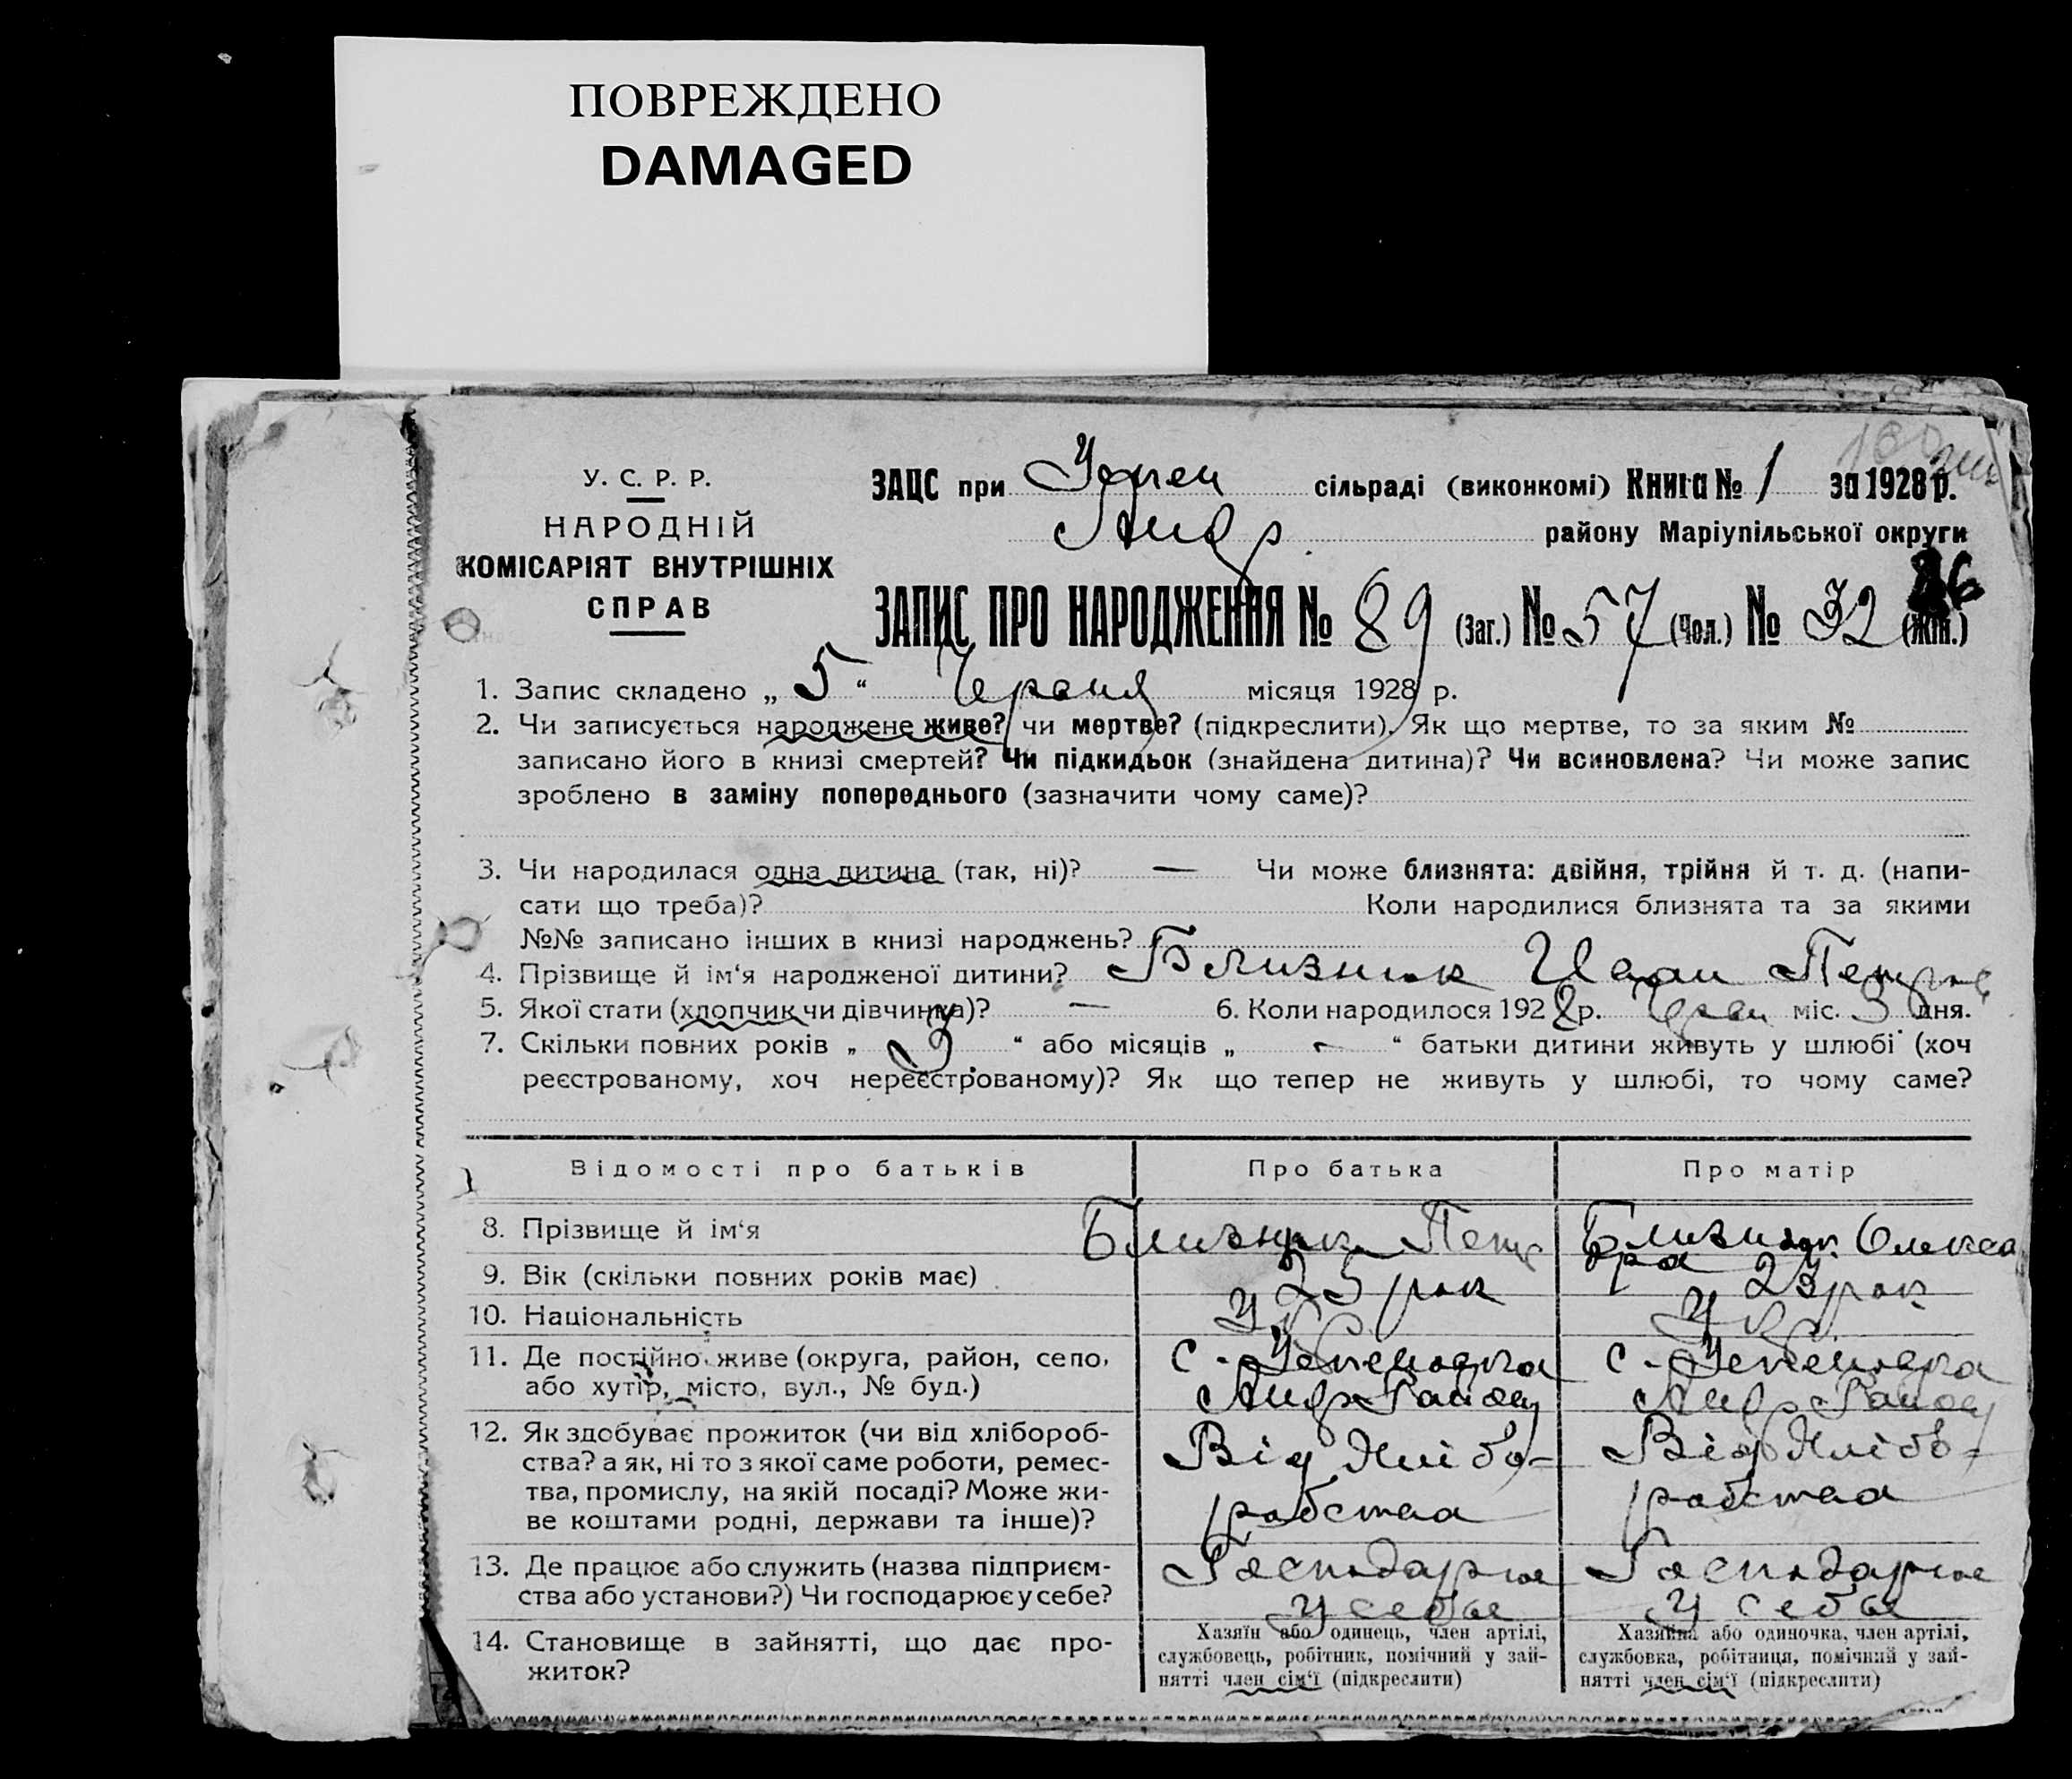 ПОВРЕЖДЕНО
DAMAGED
У. С. Р. Р.
НАРОДНІЙ
КОМІСАРІЯТ ВНУТРІШНІХ
СПРАВ
ЗАЦС при Успен сільраді (виконкомі) Книга № 1 за 1928 р.
Андр. району Маріупільської округи
86
ЗАПИС ПРО НАРОДЖЕННЯ № 89 (Заг.) № 57 (Чол.) № 32 (Жін.)
1. Запис складено „ 5 “ Червня місяця 1928 р.
2. Чи записується народжене живе? чи мертве? (підкреслити). Як що мертве, то за яким №
записано його в книзі смертей? Чи підкидьок (знайдена дитина)? Чи всиновлена? Чи може запис
зроблено в заміну попереднього (зазначити чому саме)?
3. Чи народилася одна дитина (так, ні)? — Чи може близнята: двійня, трійня й т. д. (напи-
сати що треба)? Коли народилися близнята та за якими
№№ записано інших в книзі народжень?
4. Прізвище й ім‘я народженої дитини? Близнюк Иван Петров
5. Якої стати (хлопчик чи дівчинка)? — 6. Коли народилося 1928 р. Черв міс. 3 дня.
7. Скільки повних років „ 3 “ або місяців „ - “ батьки дитини живуть у шлюбі (хоч
реєстрованому, хоч нереєстрованому)? Як що тепер не живуть у шлюбі, то чому саме?
Відомості про батьків Про батька Про матір
8. Прізвище й ім‘я Близнюк Петр Близнюк Олекса
ндра
9. Вік (скільки повних років має) 25 рок 23 рок
10. Національність Укр Укр
11. Де постійно живе (округа, район, село, с. Успеновка с. Успеновка
або хутір, місто, вул., № буд.) Андр Району Андр Району
12. Як здобуває прожиток (чи від хлібороб- Від Хлібо- Від Хлібо-
ства? а як, ні то з якої саме роботи, ремес-
тва, промислу, на якій посаді? Може жи- робства робства
ве коштами родні, держави та інше)?
13. Де працює або служить (назва підприєм- Господарює Господарює
ства або установи?) Чи господарює у себе? у себе у себе
14. Становище в зайнятті, що дає про- Хазяїн або одинець, член артілі, Хазяйка або одиночка, член артілі,
житок? службовець, робітник, помічний у зай- службовка, робітниця, помічний у зай-
нятті член сім‘ї (підкреслити) нятті член сім‘ї (підкреслити)